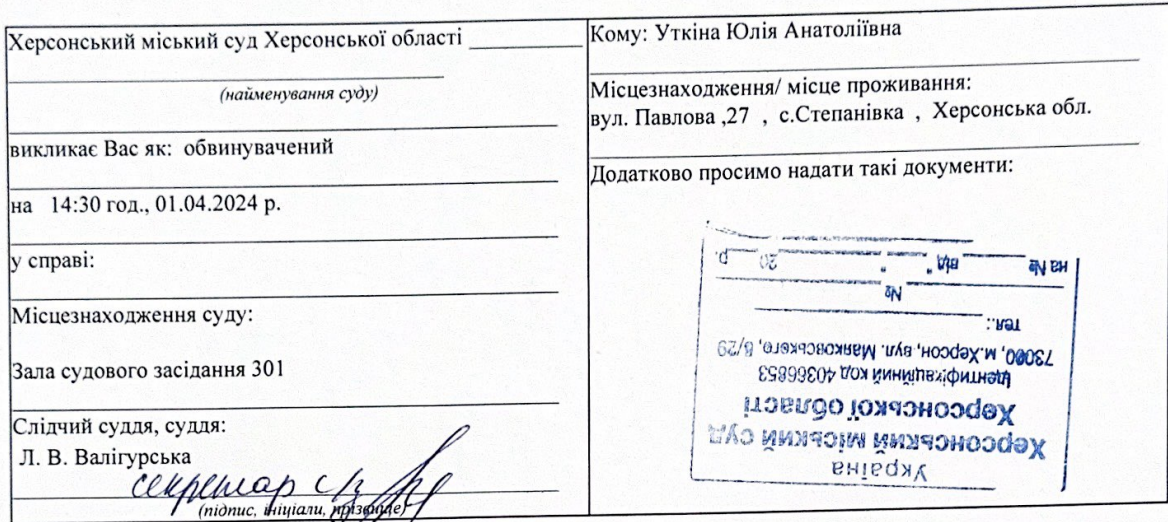 Херсонський міський суд Херсонської області
(найменування суду)
викликає Вас як: обвинувачений
на 14:30 год., 01.04.2024 р.
у справі:
Місцезнаходження суду:
Зала судового засідання 301
Слідчий суддя, суддя:
Л. В. Валігурська
секретар с/з
(підпис, ініціали, прізвище)
Кому: Уткіна Юлія Анатоліївна
Місцезнаходження/ місце проживання:
вул. Павлова ,27 , с.Степанівка , Херсонська обл.
Додатково просимо надати такі документи:
Україна
Херсонський міський суд
Херсонської області
Ідентифікаційний код 40366853
73000, м.Херсон, вул. Маяковського, 6/29
тел.:
№
на № від " " 20 р.